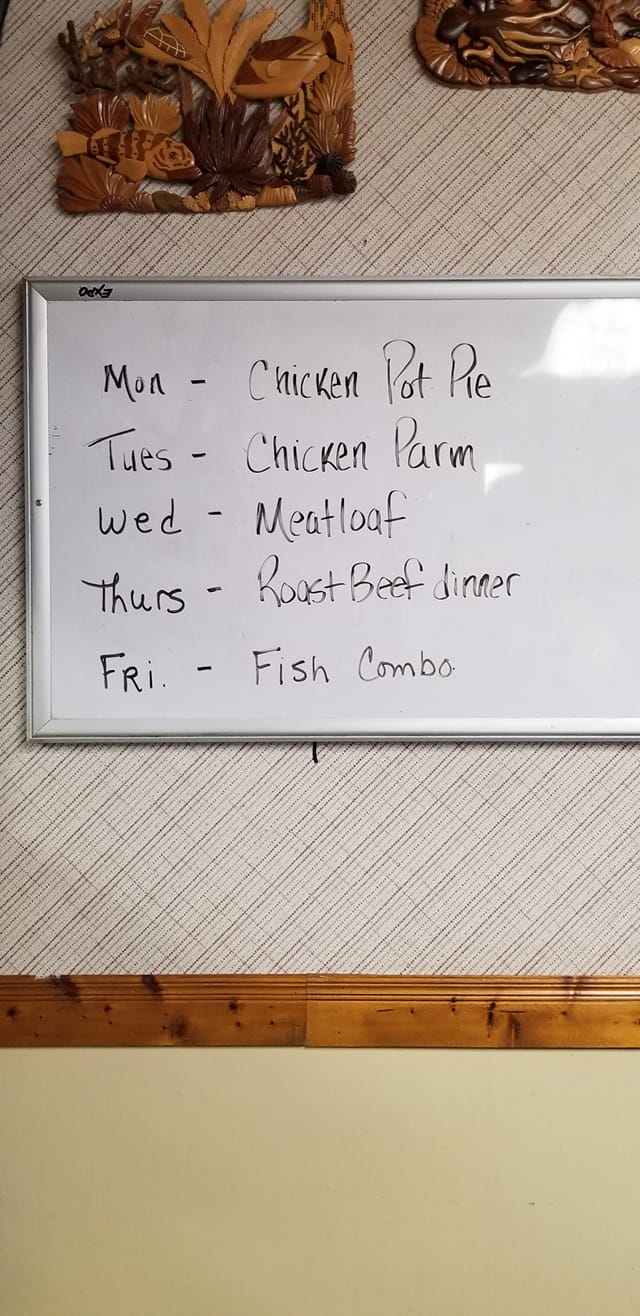 EXPO
Mon - Chicken Pot Pie
Tues - Chicken Parm
Wed - Meatloaf
Thurs - Roast Beef dinner
FRi. - Fish Combo